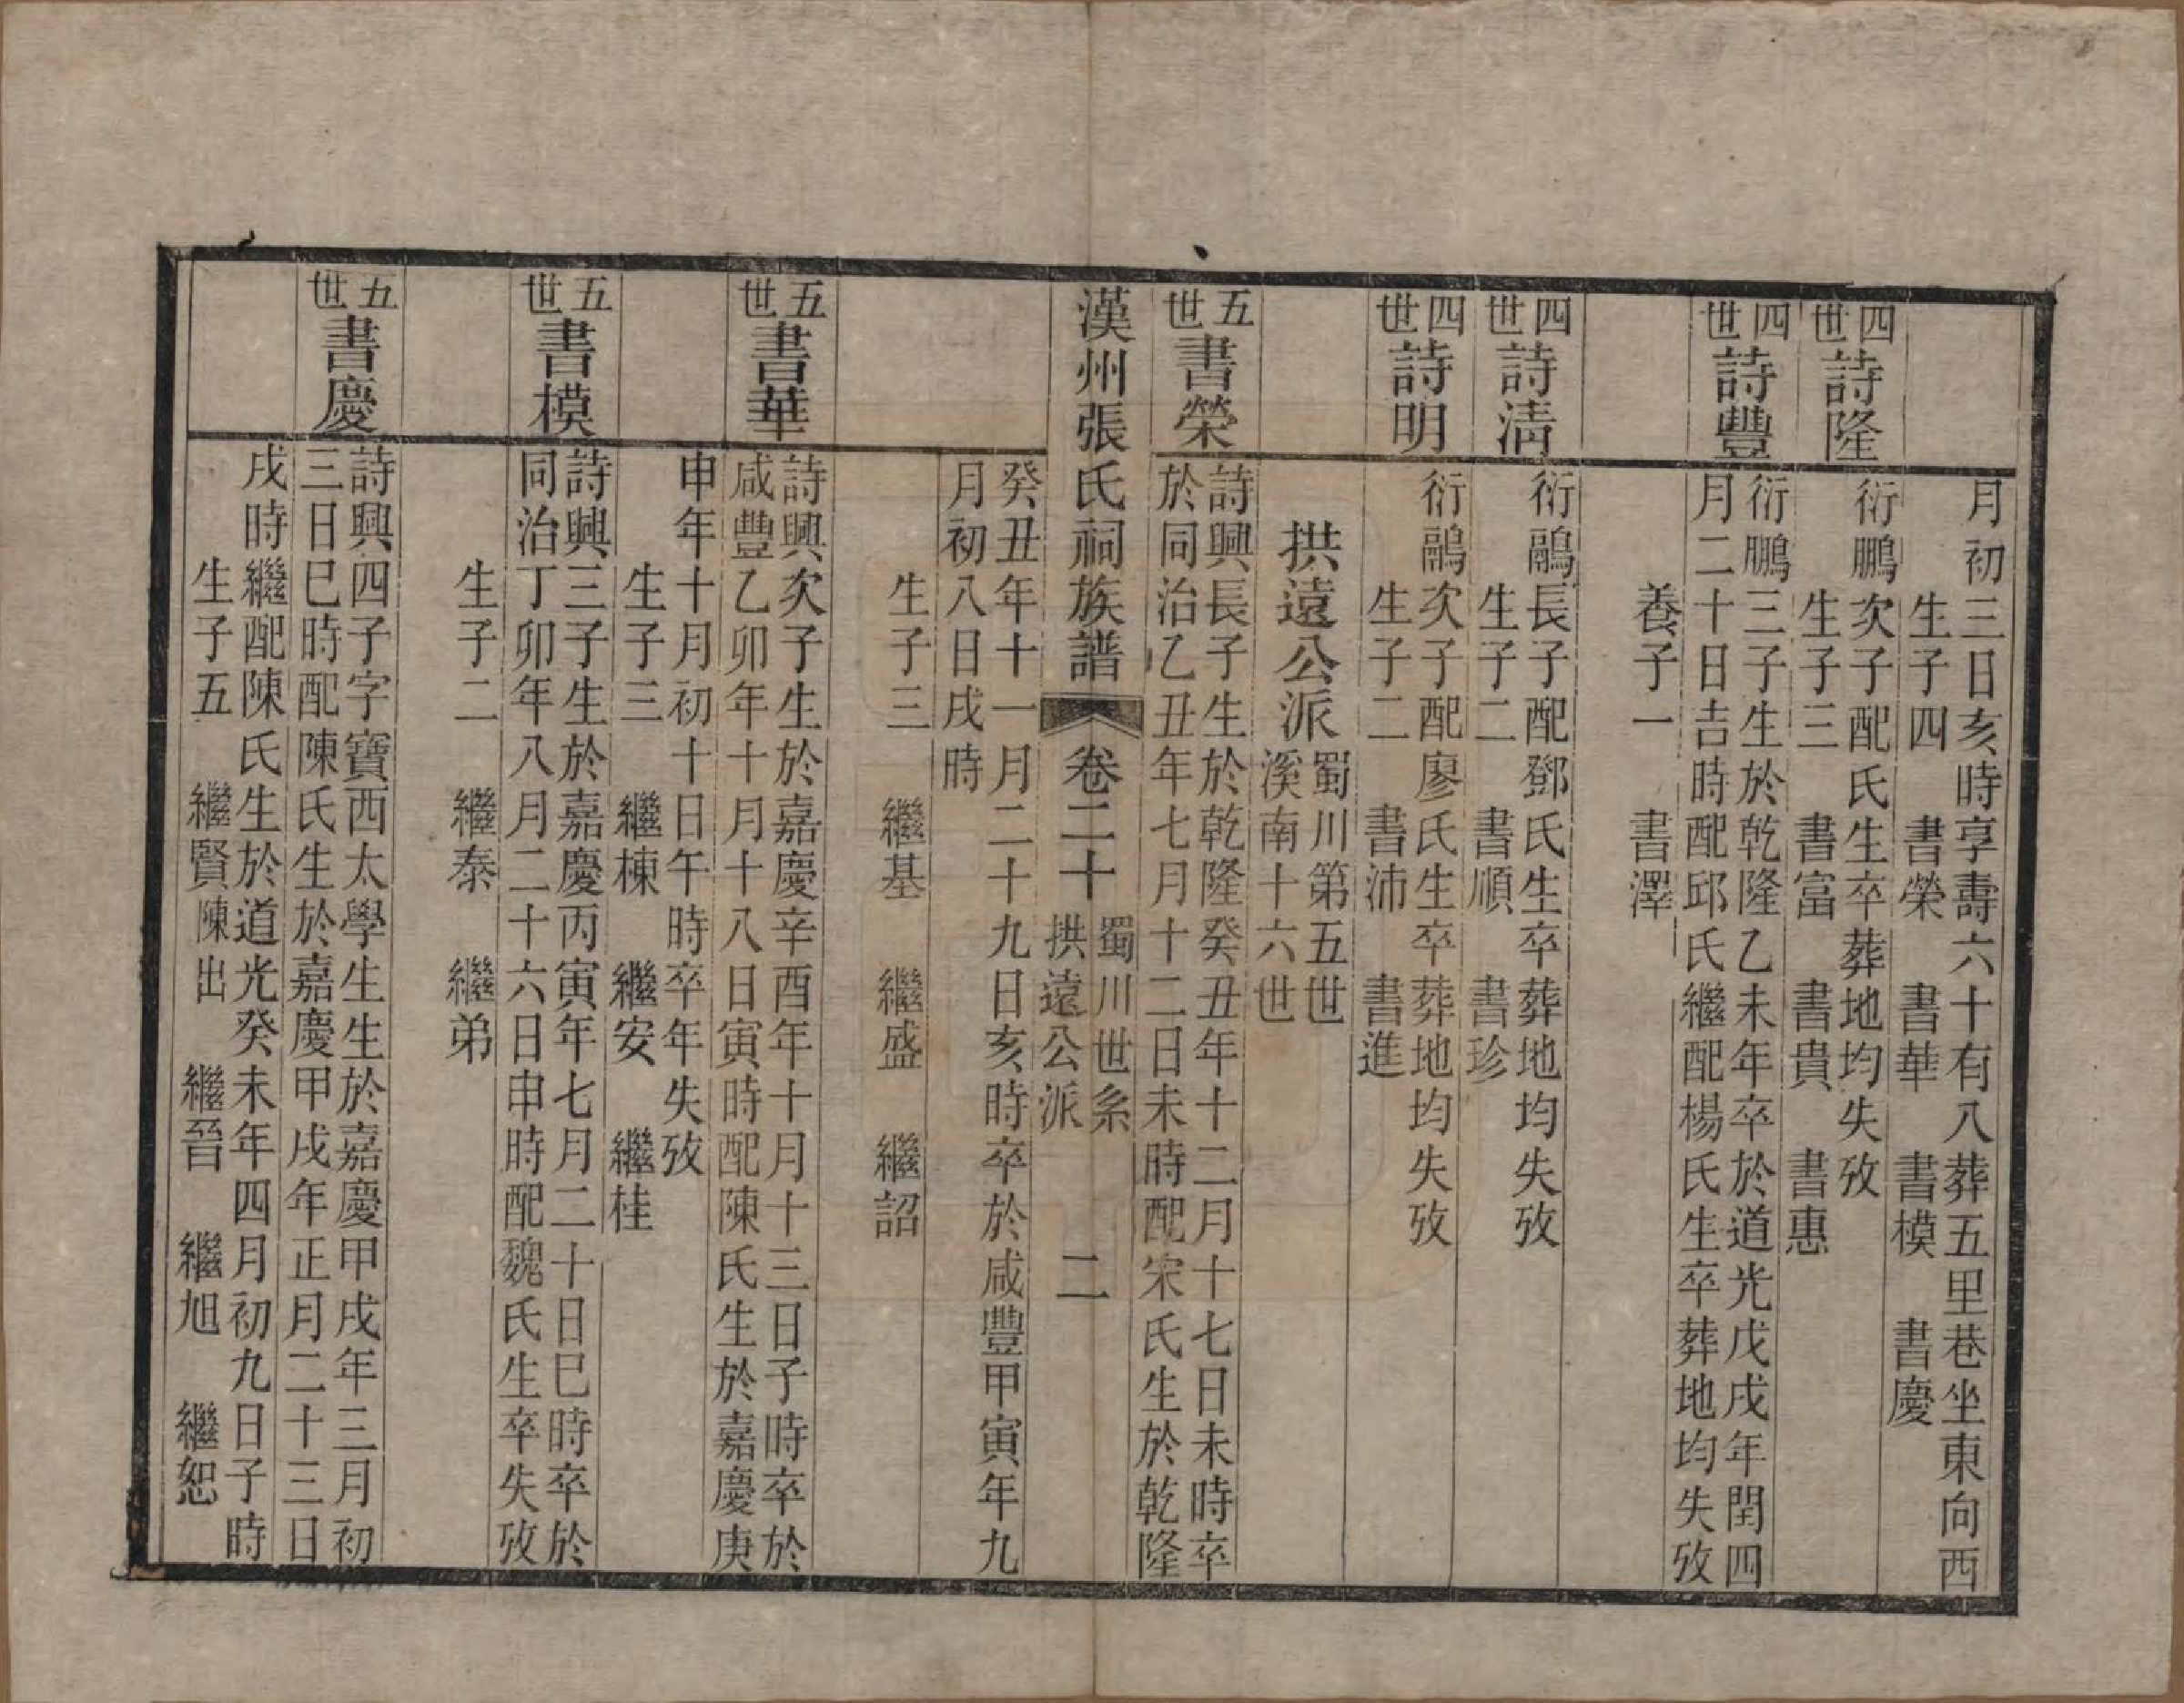 月初三日亥時享壽六十有八葬五里巷坐東向西
生子四　書榮　書華　書模　書慶
四世詩隆
衍鵬次子配氏生卒葬地均失攷
生子三　書富　書貴　書惠
四世詩豐
衍鵬三子生於乾隆乙未年卒於道光戊戌年閏四
月二十日吉時配邱氏繼配楊氏生卒葬地均失攷
養子一　書澤
四世詩清
衍鷸長子配鄧氏生卒葬地均失攷
生子二　書順　書珍
四世詩明
衍鷸次子配廖氏生卒葬地均失攷
生子二　書沛　書進
拱遠公派
蜀川第五世
溪南十六世
五世書榮
詩興長子生於乾隆癸丑年十二月十七日未時卒
於同治乙丑年七月十二日未時配宋氏生於乾隆
漢州張氏祠族譜　卷二十　蜀川世系　拱遠公派　二
癸丑年十一月二十九日亥時卒於咸豐甲寅年九
月初八日戌時
生子三　繼基　繼盛　繼詔
五世書華
詩興次子生於嘉慶辛酉年十月十三日子時卒於
咸豐乙卯年十月十八日寅時配陳氏生於嘉慶庚
申年十月初十日午時卒年失攷
生子三　繼棟　繼安　繼桂
五世書模
詩興三子生於嘉慶丙寅年七月二十日巳時卒於
同治丁卯年八月二十六日申時配魏氏生卒失攷
生子二　繼泰　繼弟
五世書慶
詩興四子字寶西太學生生於嘉慶甲戌年三月初
三日巳時配陳氏生於嘉慶甲戌年正月二十三日
戌時繼配陳氏生於道光癸未年四月初九日子時
生子五　繼賢陳出　繼晉　繼旭　繼恕